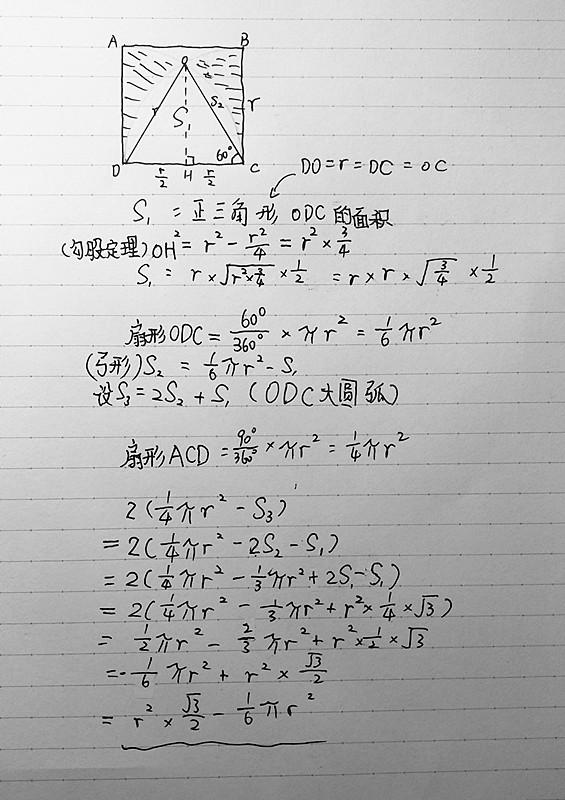 A B
O
S₁ S₂ r
60°
D r/2 H r/2 C
DO=r=DC=OC
S₁ = 正三角形 ODC 的面积
(勾股定理) OH² = r² - r²/4 = r² × 3/4
S₁ = r × √(r²×3/4) × 1/2 = r × r × √(3/4) × 1/2
扇形ODC = 60°/360° × πr² = 1/6 πr²
(弓形) S₂ = 1/6 πr² - S₁
设S₃ = 2S₂ + S₁ (ODC大圆弧)
扇形ACD = 90°/360° × πr² = 1/4 πr²
2(1/4 πr² - S₃)
= 2(1/4 πr² - 2S₂ - S₁)
= 2(1/4 πr² - 1/3 πr² + 2S₁ - S₁)
= 2(1/4 πr² - 1/3 πr² + r² × 1/4 × √3)
= 1/2 πr² - 2/3 πr² + r² × 1/2 × √3
= -1/6 πr² + r² × √3/2
= r² × √3/2 - 1/6 πr²